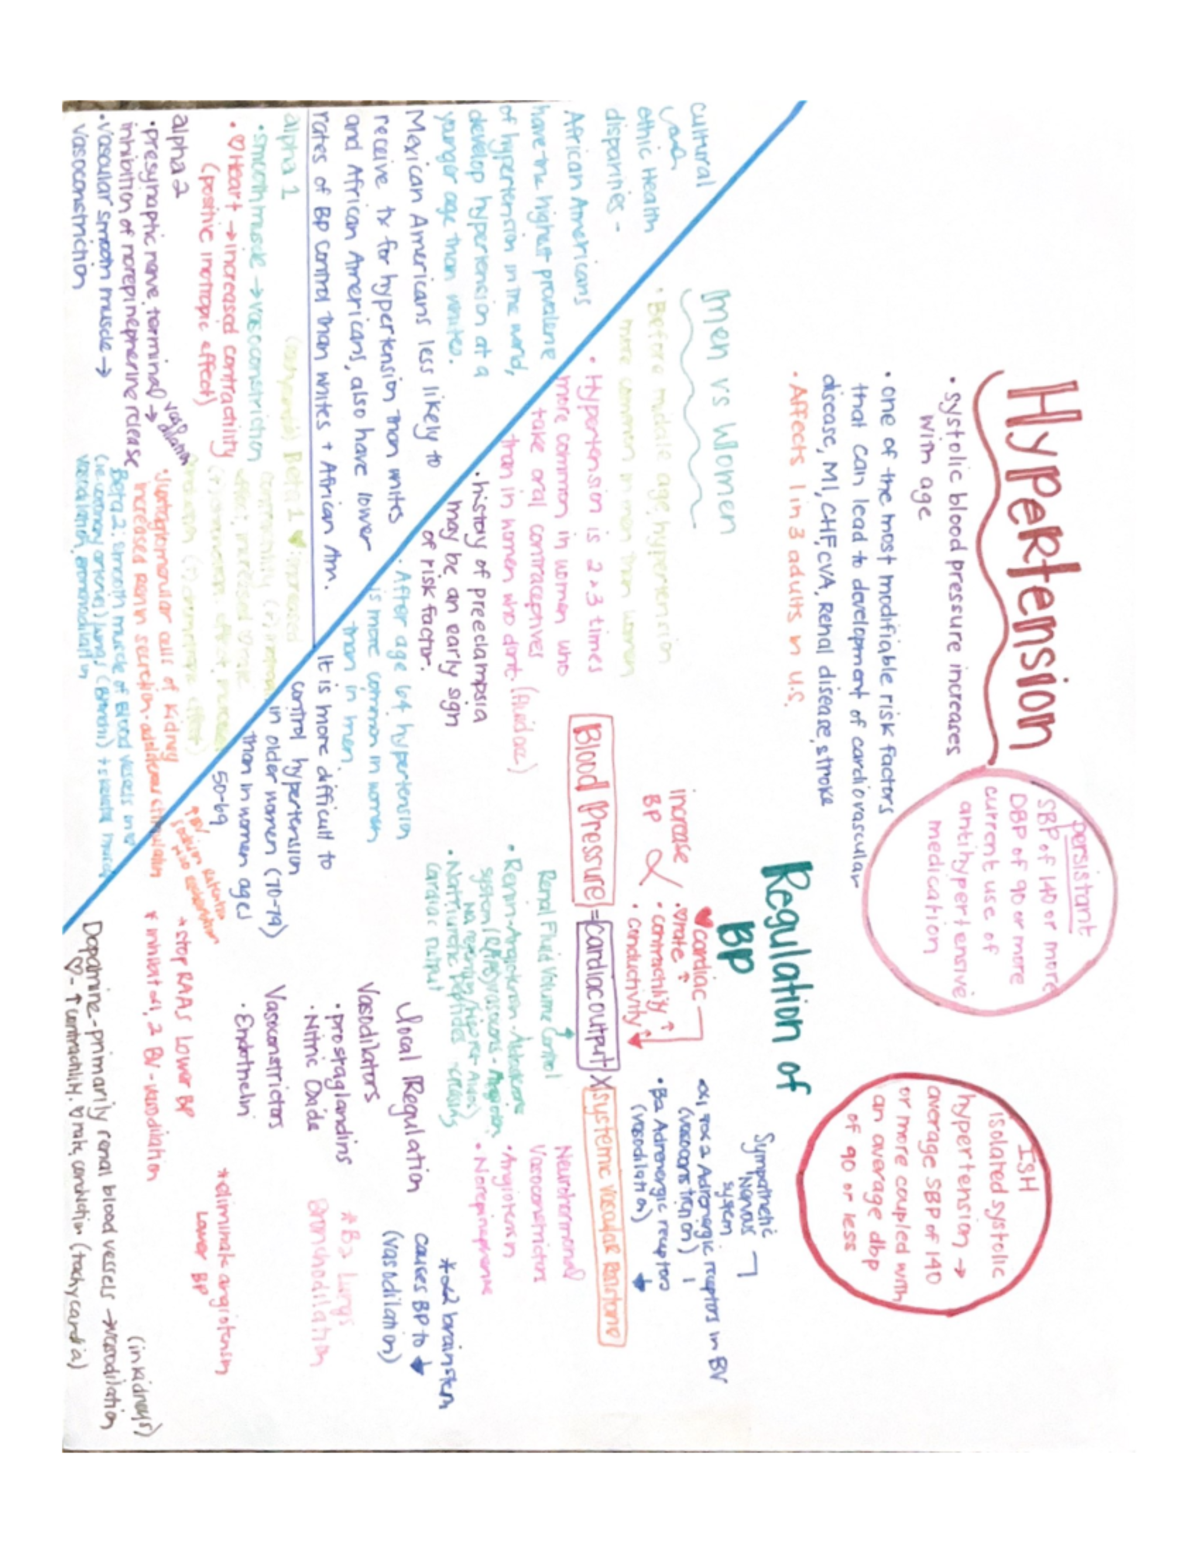 Hypertension
• systolic blood pressure increases
with age
• one of the most modifiable risk factors
that can lead to development of cardiovascular
disease, MI, CHF, CVA, Renal disease, stroke
• Affects 1 in 3 adults in U.S.
persistant
SBP of 140 or more
DBP of 90 or more
current use of
antihypertensive
medication
ISH
isolated systolic
hypertension →
average SBP of 140
or more coupled with
an average dbp
of 90 or less
Men vs Women
• Before middle age, hypertension
more common in men than women
• Hypertension is 2×3 times
more common in women who
take oral contraceptives
than in women who dont. (fluid vol)
• history of preeclampsia
may be an early sign
of risk factor.
• After age 64 hypertension
is more common in women
than in men.
It is more difficult to
control hypertension
in older women (70-79)
than in women ages
50-69
Cultural
ethic Health
disparities -
African Americans
have the highest prevalence
of hypertension in the world,
develop hypertension at a
younger age than whites.
Mexican Americans less likely to
receive tx for hypertension than whites
and African Americans, also have lower
rates of BP control than whites + African Am.
alpha 1
• smooth muscle → vasoconstriction
• ♡ Heart → increased contractility
(positive inotropic effect)
alpha 2
• presynaptic nerve terminal → vasodilation
inhibition of norepinepherine release
• Vascular smooth muscle →
vasoconstriction
(tachycardia) Beta 1 ♥ • increased
contractility
Juxtaglomerular cells of kidney
increases Renin secretion
Beta 2: smooth muscle of Blood vessels in
(i.e. coronary arteries) lungs (Bronchi) + skeletal muscle
vasodilation, bronchodilation
Regulation of
BP
increase
BP
♥ cardiac
• ♡ rate ↑
• contractility ↑
• conductivity ↑
Sympathetic
Nervous
system
• α1 + α2 Adrenergic receptors in BV
(vasoconstriction) ↑
• B2 Adrenergic receptors
(vasodilation) ↓
Blood Pressure = cardiac output × systemic vascular resistance
Renal Fluid Volume Control
• Renin-Angiotensin-Aldosterone
system (RAAS)
• Natriuretic Peptides
cardiac output
Neurohormonal
Vasoconstrictors
• Angiotensin
• Norepinepherine
Local Regulation
Vasodilators
• prostaglandins
• Nitric Oxide
Vasoconstrictors
• Endothelin
* α2 brainstem
causes BP to ↓
(vasodilation)
* B2 Lungs
Bronchodilation
* stop RAAS Lower BP
* inhibit α1, 2 BV - vasodilation
* diminate angiotensin
Lower BP
Dopamine - primarily renal blood vessels → vasodilation
(in kidneys)
♡ - ↑ contractility, ♡ rate, conduction (tachycardia)